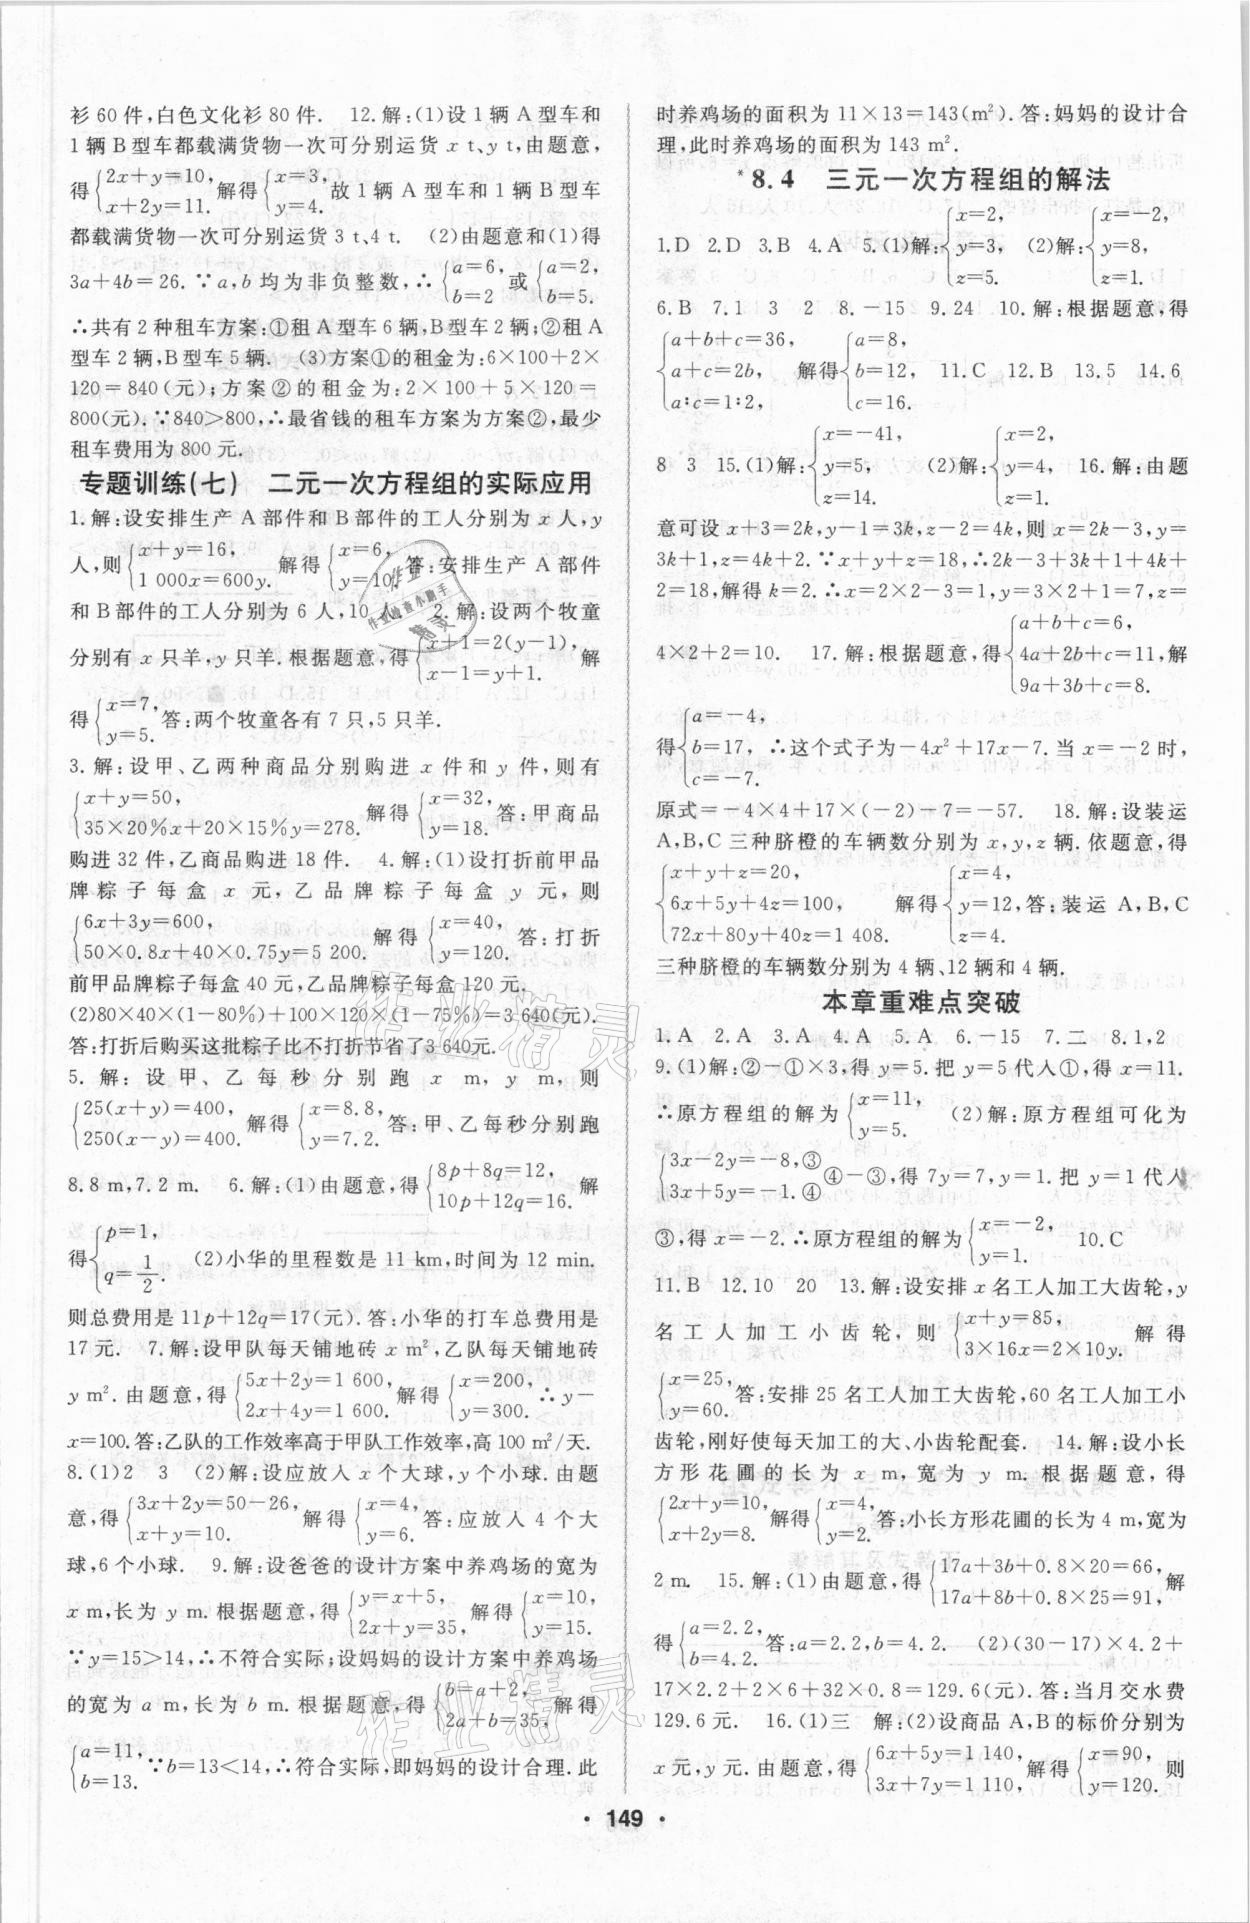 衫 60 件,白色文化衫 80 件. 12.解:(1)设 1 辆 A 型车和
1 辆 B 型车都载满货物一次可分别运货 x t、y t,由题意,
得{2x+y=10, x+2y=11. 解得{x=3, y=4. 故 1 辆 A 型车和 1 辆 B 型车
都载满货物一次可分别运货 3 t、4 t. (2)由题意和(1)得
3a+4b=26. ∵a,b 均为非负整数,∴{a=6, b=2 或{a=2, b=5.
∴共有 2 种租车方案:①租 A 型车 6 辆,B 型车 2 辆;②租 A
型车 2 辆,B 型车 5 辆. (3)方案①的租金为:6×100+2×
120=840(元);方案②的租金为:2×100+5×120=
800(元).∵840>800,∴最省钱的租车方案为方案②,最少
租车费用为 800 元.
专题训练(七) 二元一次方程组的实际应用
1.解:设安排生产 A 部件和 B 部件的工人分别为 x 人,y
人,则{x+y=16, 1 000x=600y. 解得{x=6, y=10. 答:安排生产 A 部件
和 B 部件的工人分别为 6 人,10 人. 2.解:设两个牧童
分别有 x 只羊,y 只羊.根据题意,得{x+1=2(y-1), x-1=y+1. 解
得{x=7, y=5. 答:两个牧童各有 7 只,5 只羊.
3.解:设甲、乙两种商品分别购进 x 件和 y 件,则有
{x+y=50, 35×20%x+20×15%y=278. 解得{x=32, y=18. 答:甲商品
购进 32 件,乙商品购进 18 件. 4.解:(1)设打折前甲品
牌粽子每盒 x 元,乙品牌粽子每盒 y 元,则
{6x+3y=600, 50×0.8x+40×0.75y=5 200. 解得{x=40, y=120. 答:打折
前甲品牌粽子每盒 40 元,乙品牌粽子每盒 120 元.
(2)80×40×(1-80%)+100×120×(1-75%)=3 640(元).
答:打折后购买这批粽子比不打折节省了 3 640元.
5.解:设甲、乙每秒分别跑 x m,y m,则
{25(x+y)=400, 250(x-y)=400. 解得{x=8.8, y=7.2. 答:甲、乙每秒分别跑
8.8 m,7.2 m. 6.解:(1)由题意,得{8p+8q=12, 10p+12q=16. 解
得{p=1, q=1/2. (2)小华的里程数是 11 km,时间为 12 min.
则总费用是 11p+12q=17(元).答:小华的打车总费用是
17 元. 7.解:设甲队每天铺地砖 x m²,乙队每天铺地砖
y m².由题意,得{5x+2y=1 600, 2x+4y=1 600. 解得{x=200, y=300. ∴y-
x=100.答:乙队的工作效率高于甲队工作效率,高 100 m²/天.
8.(1)2 3 (2)解:设应放入 x 个大球,y 个小球.由题
意,得{3x+2y=50-26, x+y=10. 解得{x=4, y=6. 答:应放入 4 个大
球,6 个小球. 9.解:设爸爸的设计方案中养鸡场的宽为
x m,长为 y m.根据题意,得{y=x+5, 2x+y=35, 解得{x=10, y=15.
∵y=15>14,∴不符合实际;设妈妈的设计方案中养鸡场
的宽为 a m,长为 b m.根据题意,得{b=a+2, 2a+b=35, 解得
{a=11, b=13. ∵b=13<14,∴符合实际,即妈妈的设计合理.此
时养鸡场的面积为 11×13=143(m²).答:妈妈的设计合
理,此时养鸡场的面积为 143 m².
*8.4 三元一次方程组的解法
1.D 2.D 3.B 4.A 5.(1)解:{x=2, y=3, z=5. (2)解:{x=-2, y=8, z=1.
6.B 7.1 3 2 8.-15 9.24 10.解:根据题意,得
{a+b+c=36, a+c=2b, a∶c=1∶2, 解得{a=8, b=12, c=16. 11.C 12.B 13.5 14.6
8 3 15.(1)解:{x=-41, y=5, z=14. (2)解:{x=2, y=4, z=1. 16.解:由题
意可设 x+3=2k,y-1=3k,z-2=4k,则 x=2k-3,y=
3k+1,z=4k+2.∵x+y+z=18,∴2k-3+3k+1+4k+
2=18,解得 k=2.∴x=2×2-3=1,y=3×2+1=7,z=
4×2+2=10. 17.解:根据题意,得{a+b+c=6, 4a+2b+c=11, 9a+3b+c=8. 解
得{a=-4, b=17, c=-7. ∴这个式子为-4x²+17x-7.当 x=-2 时,
原式=-4×4+17×(-2)-7=-57. 18.解:设装运
A、B、C 三种脐橙的车辆数分别为 x,y,z 辆.依题意,得
{x+y+z=20, 6x+5y+4z=100, 72x+80y+40z=1 408. 解得{x=4, y=12, z=4. 答:装运 A,B,C
三种脐橙的车辆数分别为 4 辆、12 辆和 4 辆.
本章重难点突破
1.A 2.A 3.A 4.A 5.A 6.-15 7.二 8.1,2
9.(1)解:②-①×3,得 y=5.把 y=5代人①,得 x=11.
∴原方程组的解为{x=11, y=5. (2)解:原方程组可化为
{3x-2y=-8,③ 3x+5y=-1.④ ④-③,得 7y=7,y=1.把 y=1 代人
③,得 x=-2.∴原方程组的解为{x=-2, y=1. 10.C
11.B 12.10 20 13.解:设安排 x 名工人加工大齿轮,y
名工人加工小齿轮,则{x+y=85, 3×16x=2×10y. 解得
{x=25, y=60. 答:安排 25 名工人加工大齿轮,60 名工人加工小
齿轮,刚好使每天加工的大、小齿轮配套. 14.解:设小长
方形花圃的长为 x m,宽为 y m.根据题意,得
{2x+y=10, x+2y=8. 解得{x=4, y=2. 答:小长方形花圃的长为 4 m,宽为
2 m. 15.解:(1)由题意,得{17a+3b+0.8×20=66, 17a+8b+0.8×25=91, 解
得{a=2.2, b=4.2. 答:a=2.2,b=4.2. (2)(30-17)×4.2+
17×2.2+2×6+32×0.8=129.6(元).答:当月交水费
129.6 元. 16.(1)三 解:(2)设商品 A、B的标价分别为
x元,y元.由题意,得{6x+5y=1 140, 3x+7y=1 110, 解得{x=90, y=120. 则
• 149 •
作业精灵
作业精灵
作业检查小助手